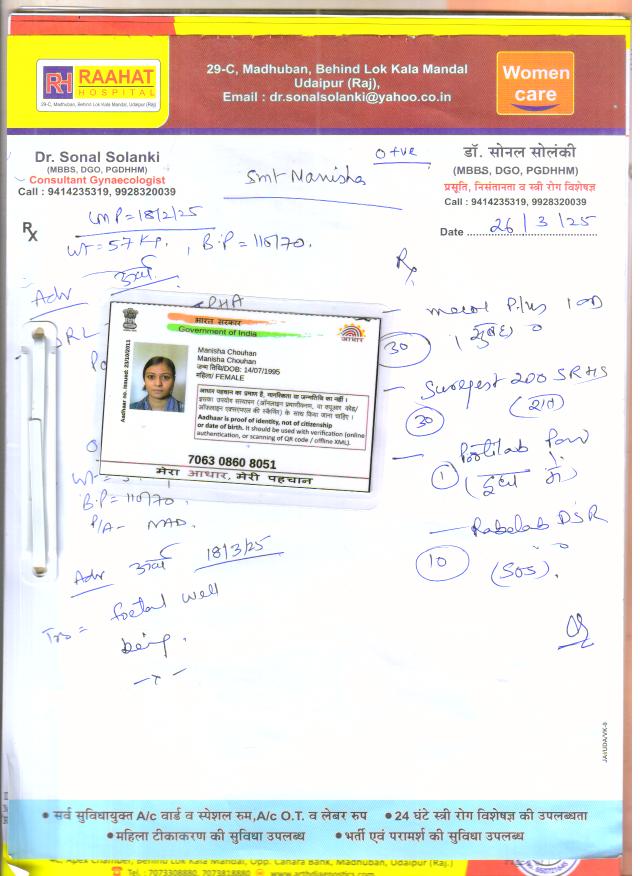 RH RAAHAT
HOSPITAL
29-C, Madhuban, Behind Lok Kala Mandal, Udaipur (Raj)
29-C, Madhuban, Behind Lok Kala Mandal
Udaipur (Raj),
Email : dr.sonalsolanki@yahoo.co.in
Women
care
Dr. Sonal Solanki
(MBBS, DGO, PGDHHM)
Consultant Gynaecologist
Call : 9414235319, 9928320039
O +ve
Smt Manisha
डॉ. सोनल सोलंकी
(MBBS, DGO, PGDHHM)
प्रसूति, निसंतानता व स्त्री रोग विशेषज्ञ
Call : 9414235319, 9928320039
Date 26/3/25
Rx
LMP = 18/2/25
Wt = 57 Kg, B.P = 110/70.
Adv
Rx
भारत सरकार
Government of India
आधार
Aadhaar no. issued: 23/10/2013
Manisha Chouhan
Manisha Chouhan
जन्म तिथि/DOB: 14/07/1995
महिला/ FEMALE
आधार पहचान का प्रमाण है, नागरिकता या जन्मतिथि का नहीं।
इसका उपयोग सत्यापन (ऑनलाइन प्रमाणीकरण, या क्यूआर कोड/
ऑफलाइन एक्सएमएल की स्कैनिंग) के साथ किया जाना चाहिए।
Aadhaar is proof of identity, not of citizenship
or date of birth. It should be used with verification (online
authentication, or scanning of QR code / offline XML).
7063 0860 8051
मेरा आधार, मेरी पहचान
30
सुबह
30
(रात)
1
10
(SOS).
B.P = 110/70.
P/A - NAD.
Adv 18/3/25
foetal well
being.
JAI/UDA/VK-9
• सर्व सुविधायुक्त A/c वार्ड व स्पेशल रुम,A/c O.T. व लेबर रुप • 24 घंटे स्त्री रोग विशेषज्ञ की उपलब्धता
• महिला टीकाकरण की सुविधा उपलब्ध • भर्ती एवं परामर्श की सुविधा उपलब्ध
Apex Chamber, Behind Lok Kala Mandal, Opp. Canara Bank, Madhuban, Udaipur (Raj.)
Tel. : 7073308880, 7073818880